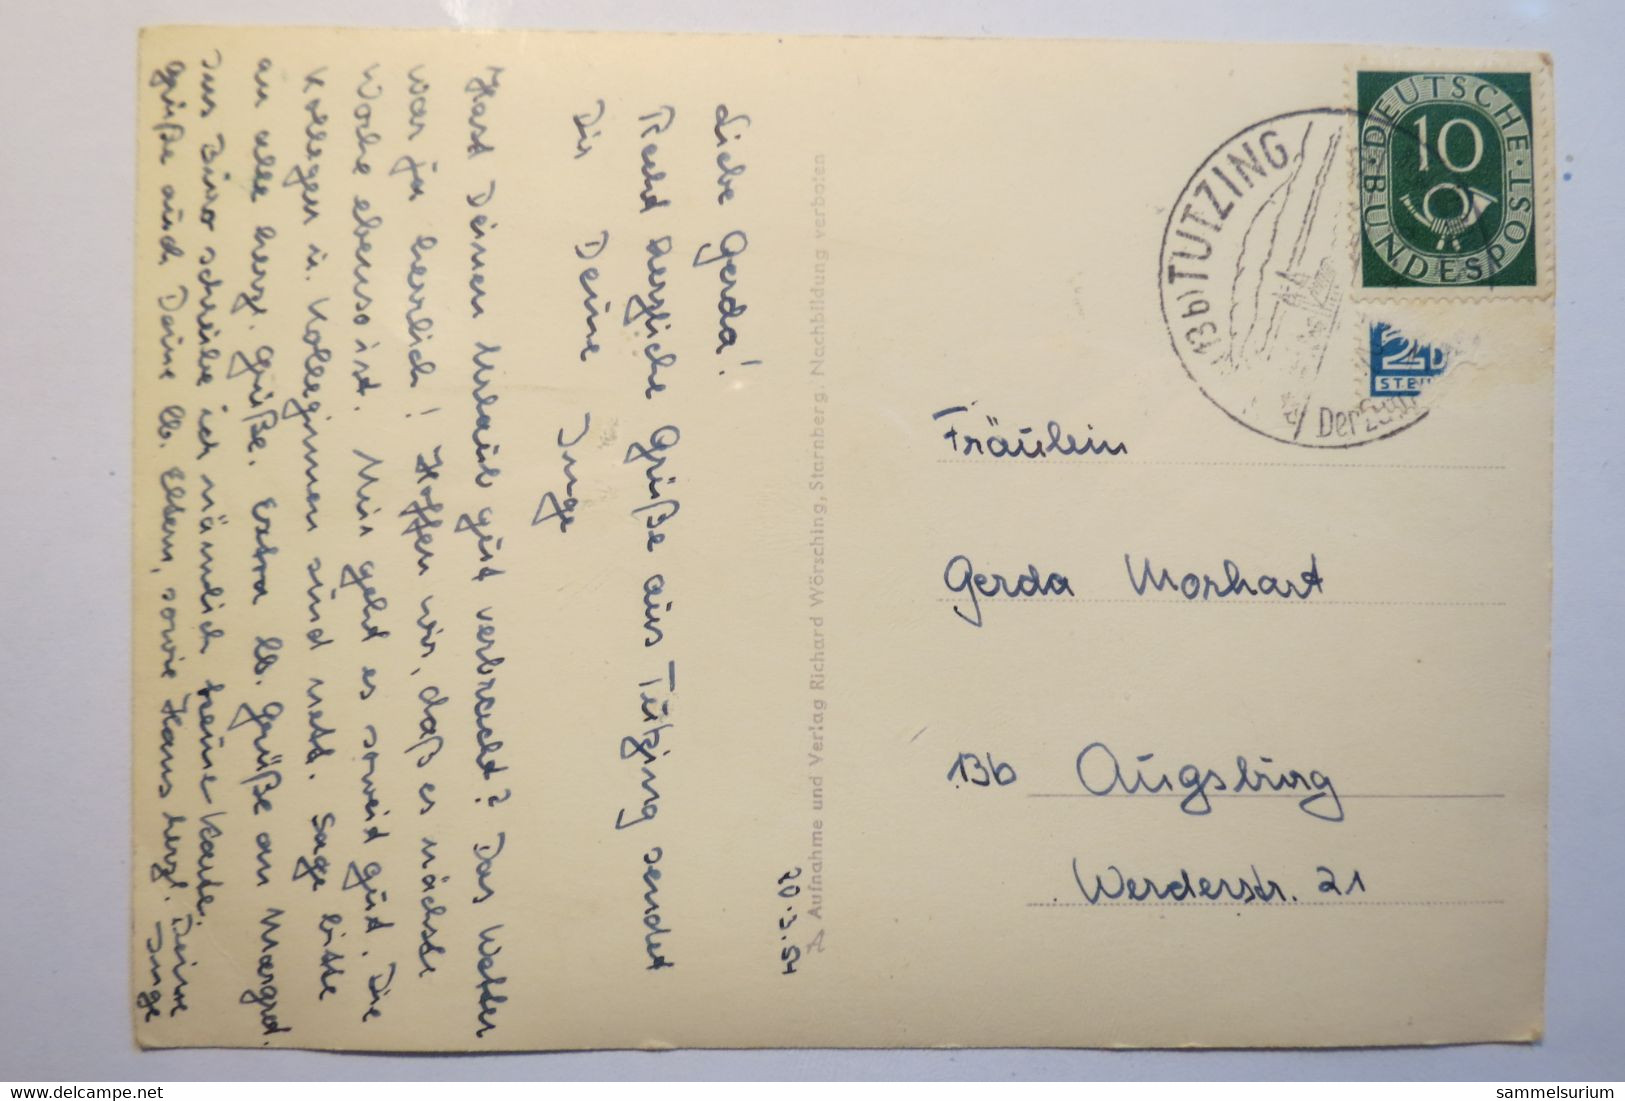 Liebe Gerda!
Recht herzliche Grüße aus Tutzing sendet
Dir Deine Inge
Hast Deinen Urlaub gut verbracht? Das Wetter
war ja herrlich! Hoffen wir, daß es nächste
Woche ebenso ist. Mir geht es soweit gut. Die
Kollegen u. Kolleginnen sind nett. Sage bitte
an alle herzl. Grüße. Extra lb. Grüße an Margret.
Ins Büro schreibe ich nämlich keine Karte.
Grüße auch Deine lb. Eltern, sowie Hans herzl. Deine
Inge
Aufnahme und Verlag Richard Wörsching, Starnberg. Nachbildung verboten
DEUTSCHE
BUNDESPOST
10
(13b) TUTZING
2
Fräulein
Gerda Morhart
13b Augsburg
Werderstr. 21
sammelsurium
delcampe.net